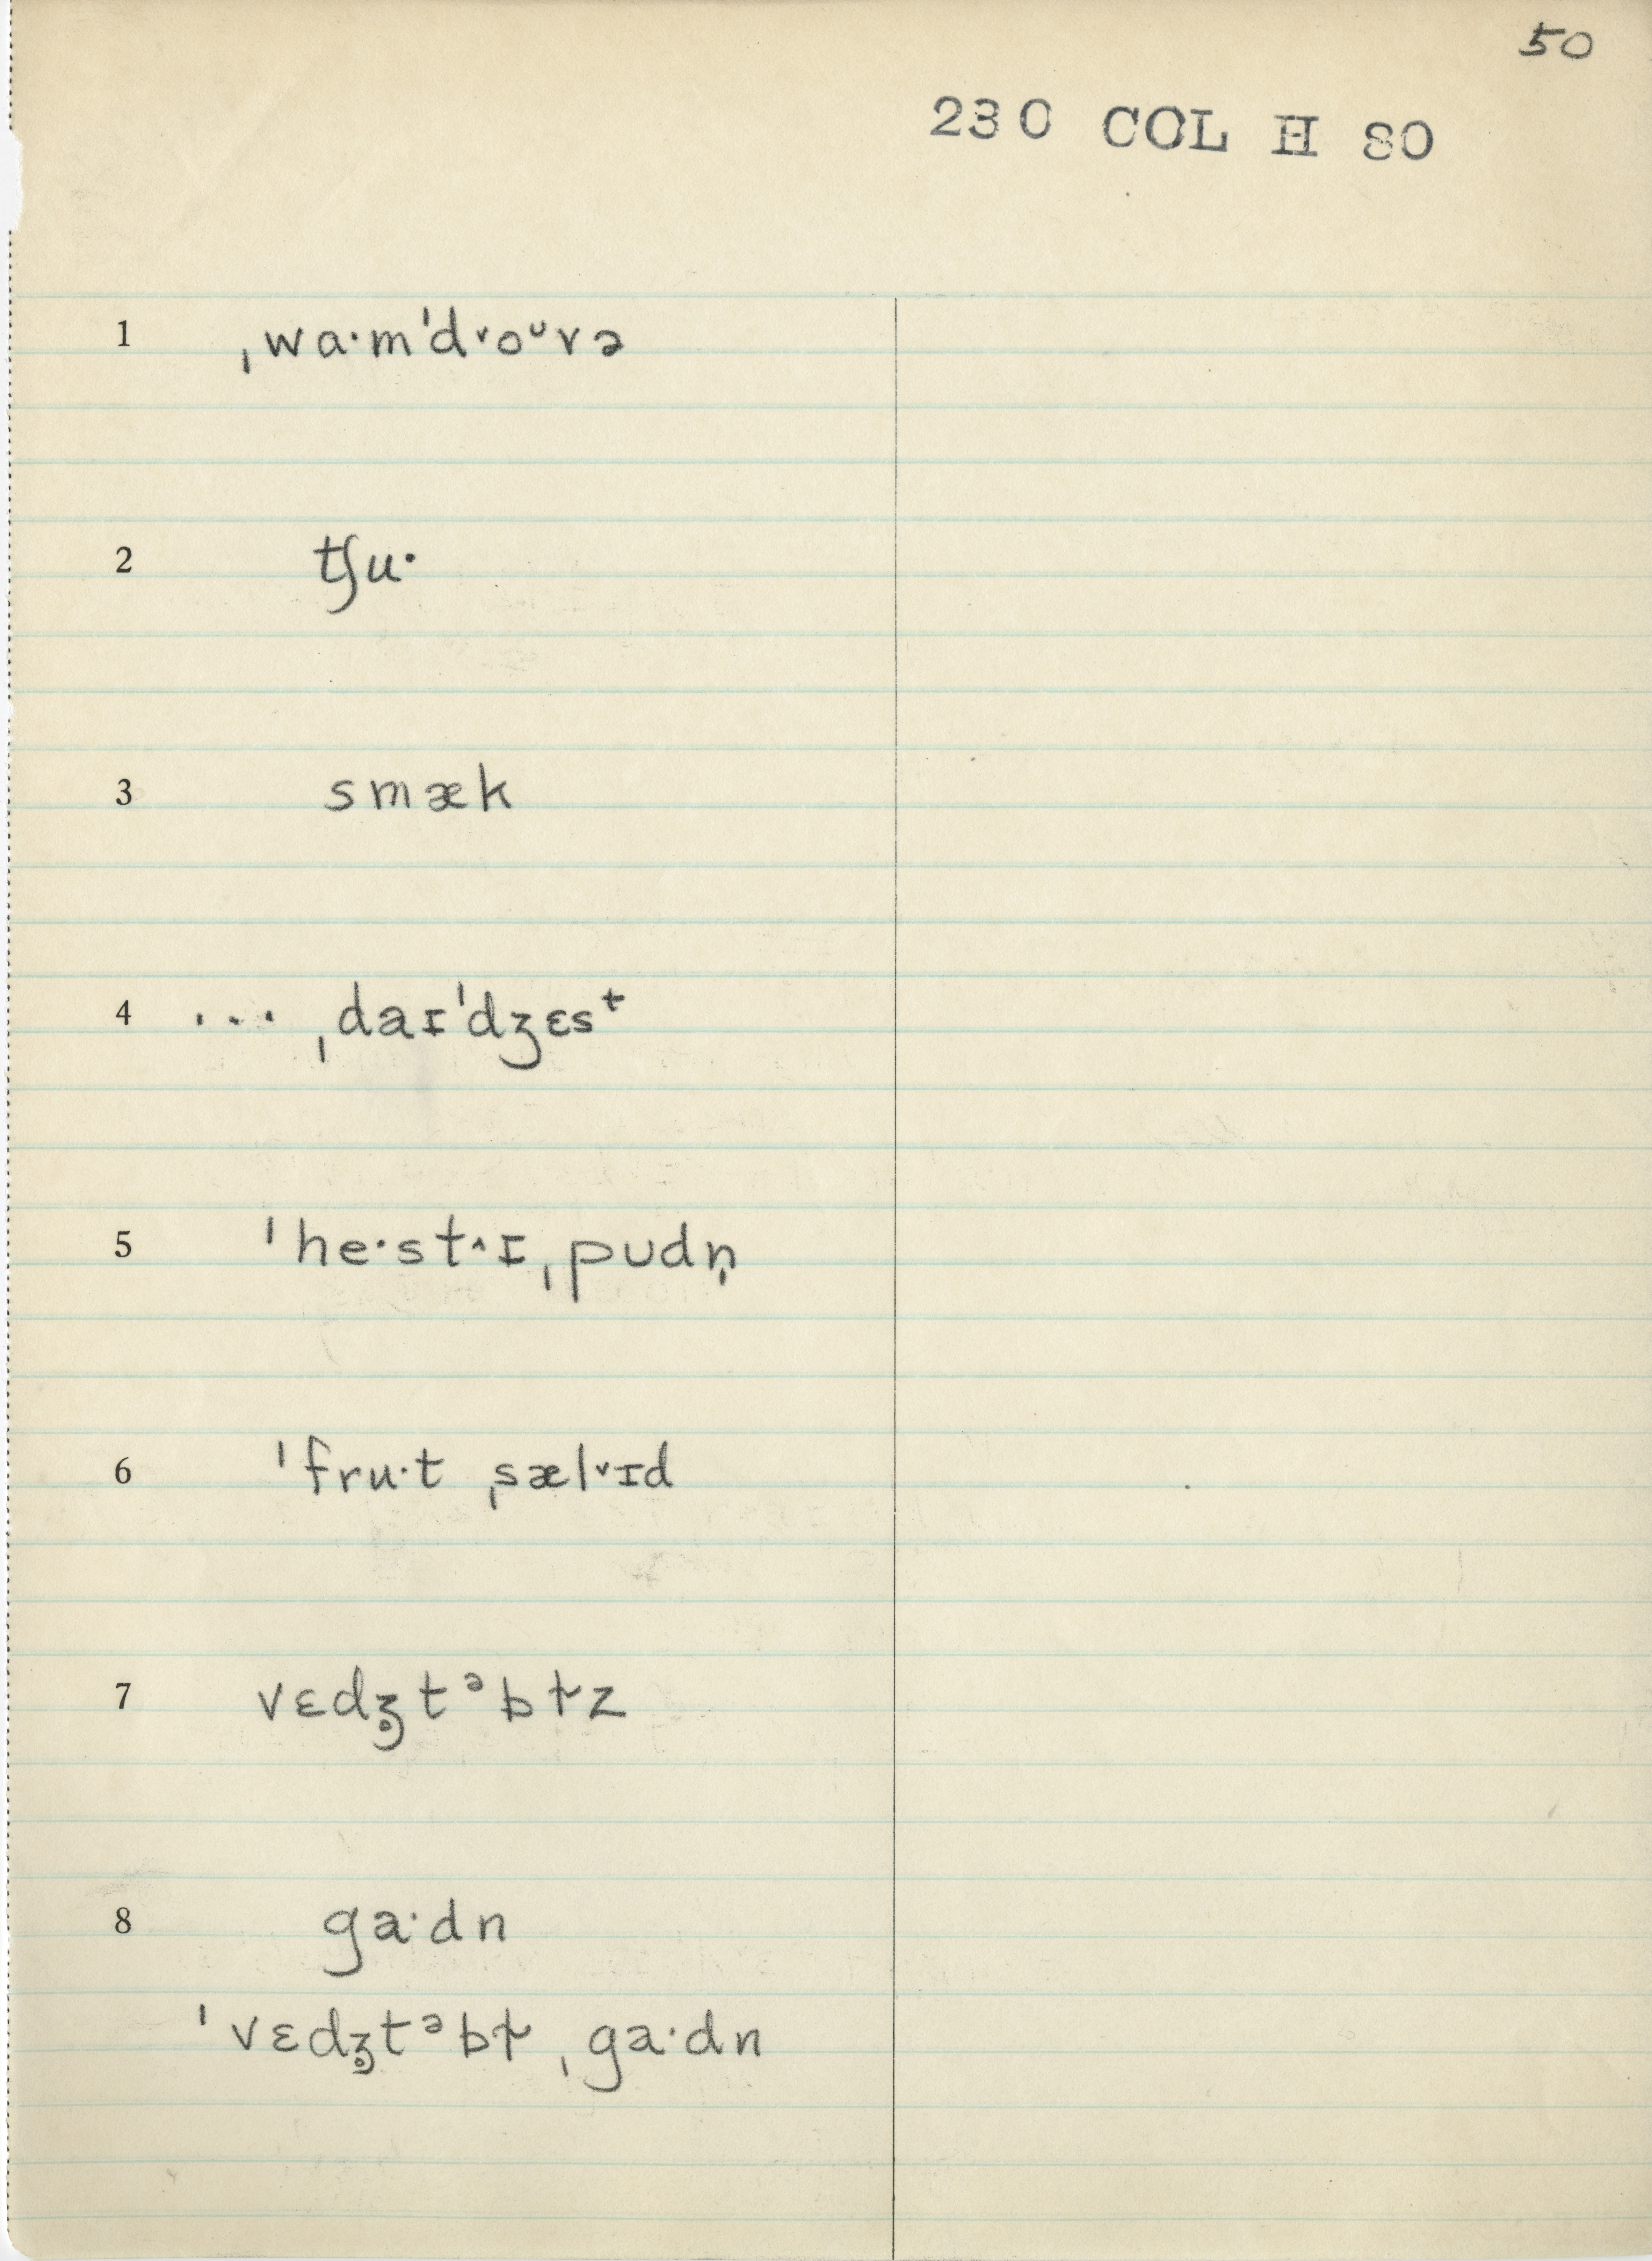 50
230 COL H 80
1 ˌwa·m'd˅oᶷvə
2 tʃu·
3 smæk
4 ... ˌdaɪ'dʒɛsᵗ
5 'he·st˄ɪˌpʊdn̩
6 'fru·t ˌsæl˅ɪd
7 vɛdʒ̥tᵊbɫz
8 ga·dn
'vɛdʒ̥tᵊbɫ ˌga·dn